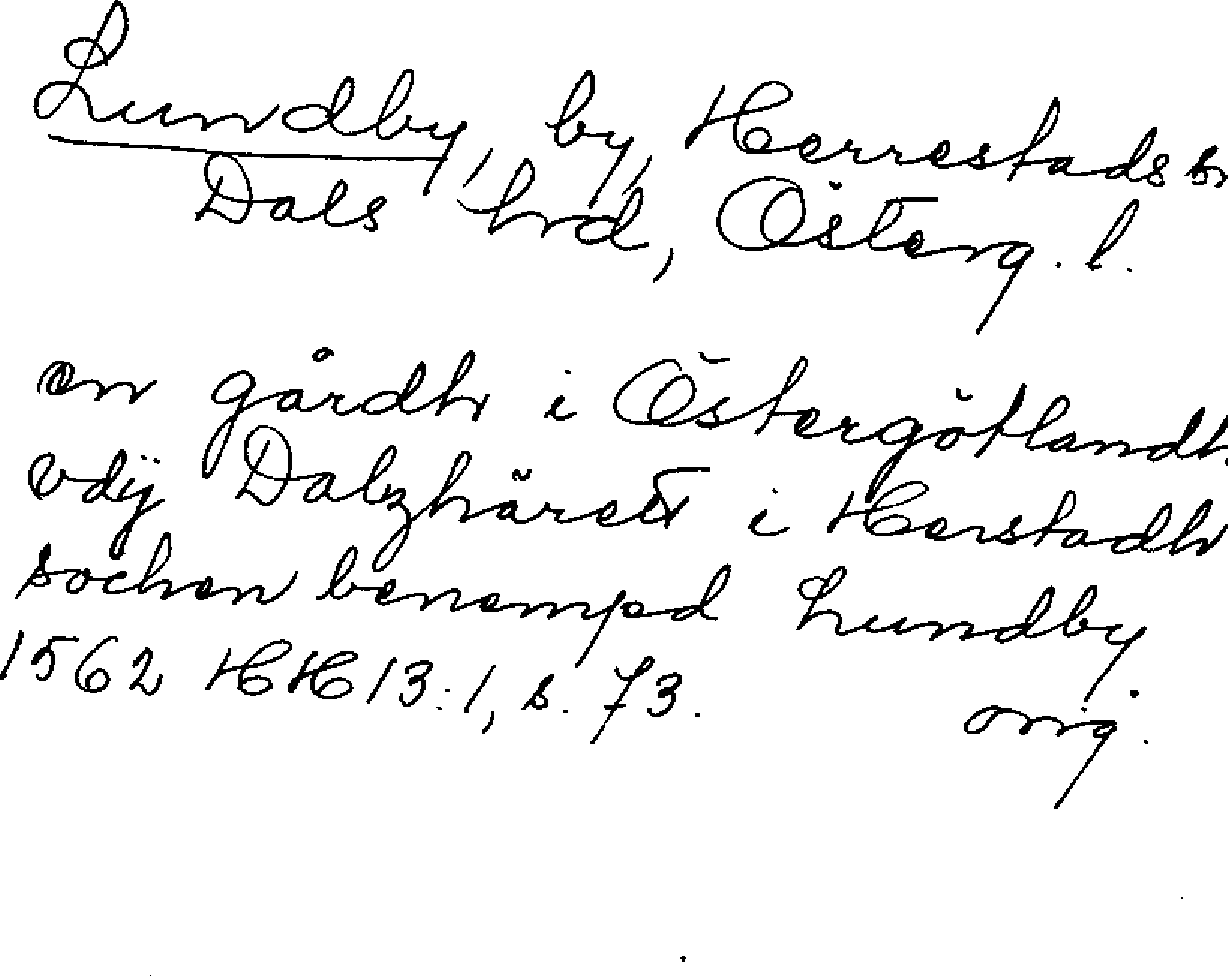 Lundby, by, Herrestads sn
Dals hrd, Österg. l.
en gårdh i Östergötlandh
vdij Dalzhärett i Herstadh
sochen benempd Lundby
1562 HH 13:1, s. 73.
orig.